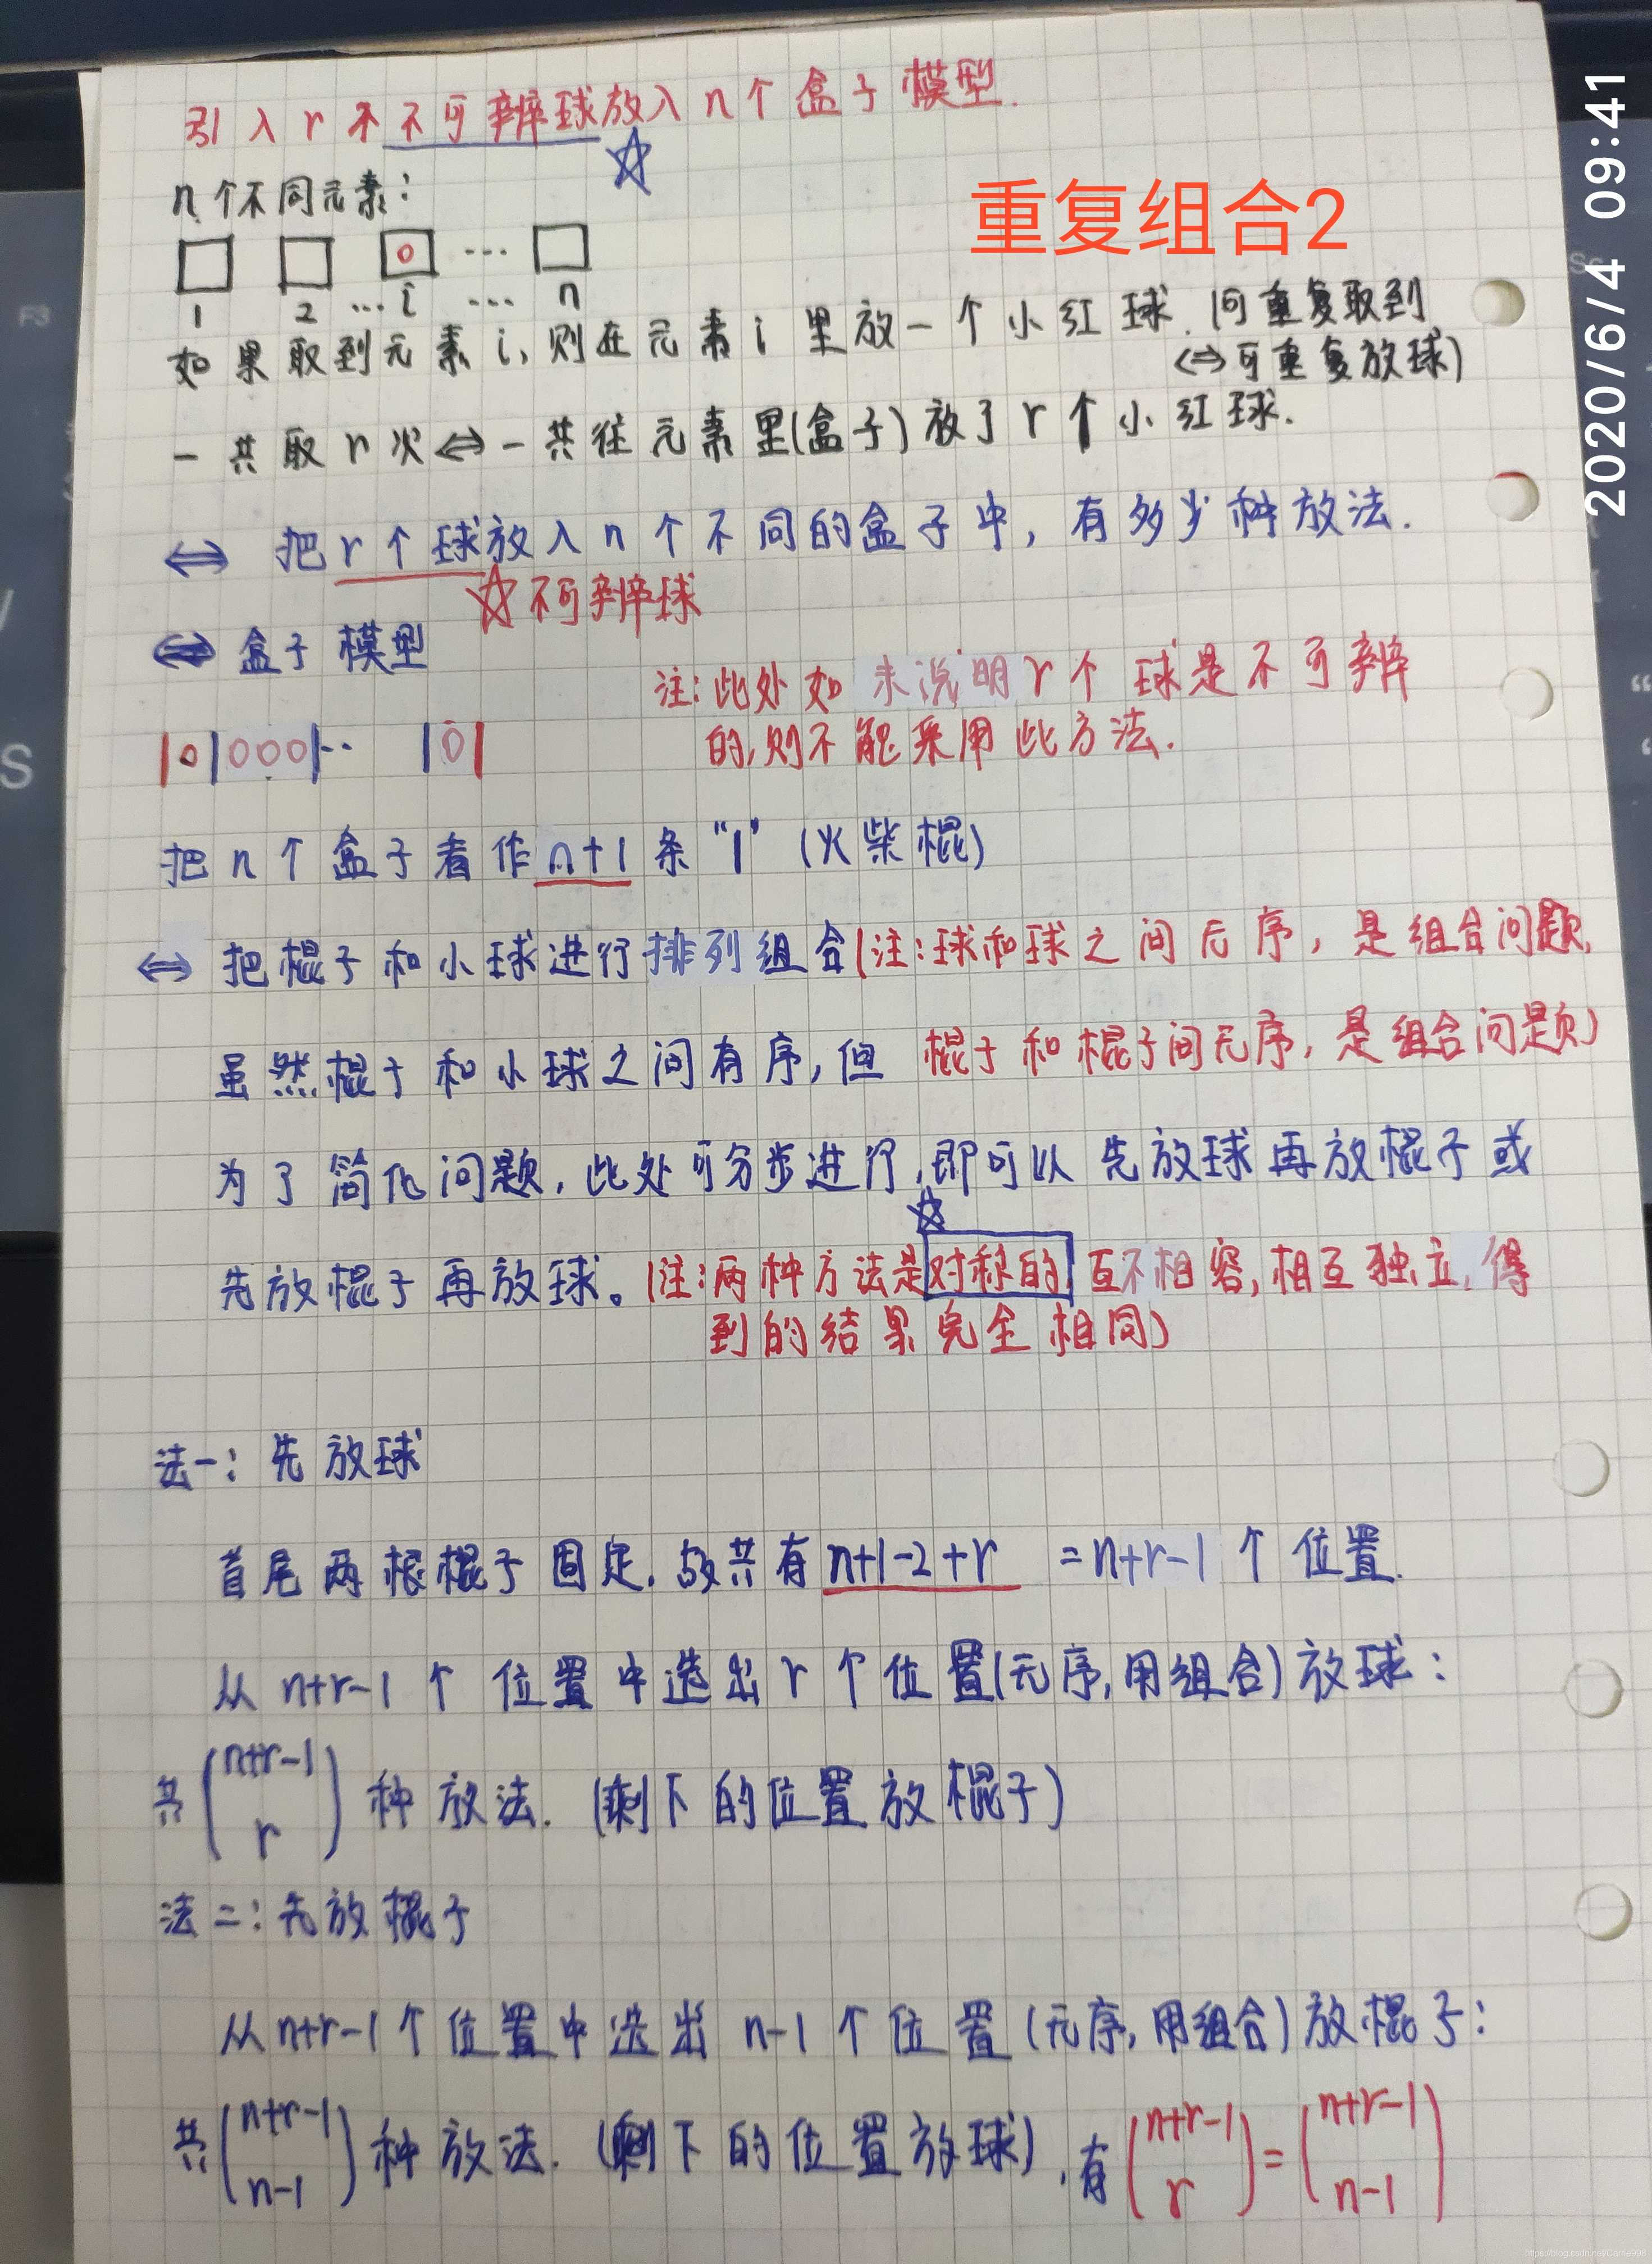 引入r个不可辨球放入n个盒子模型.
n个不同元素:
重复组合2
0 ...
1 2 ... i ... n
如果取到元素i,则在元素i里放一个小红球.(可重复取到
⇔可重复放球)
一共取r次⇔一共往元素里(盒子)放了r个小红球.
⇔ 把r个球放入n个不同的盒子中,有多少种放法.
不可辨球
⇔ 盒子模型
注:此处如未说明r个球是不可辨
的,则不能采用此方法.
|0|000|·· |0|
把n个盒子看作n+1条"|"(火柴棍)
⇔ 把棍子和小球进行排列组合(注:球和球之间无序,是组合问题,
虽然棍子和小球之间有序,但棍子和棍子间无序,是组合问题)
为了简化问题,此处可分步进行,即可以先放球再放棍子或
先放棍子再放球。(注:两种方法是对称的,互不相容,相互独立,得
到的结果完全相同)
法一:先放球
首尾两根棍子固定,故共有n+1-2+r =n+r-1个位置.
从n+r-1个位置中选出r个位置(无序,用组合)放球:
共(n+r-1 r)种放法.(剩下的位置放棍子)
法二:先放棍子
从n+r-1个位置中选出n-1个位置(无序,用组合)放棍子:
共(n+r-1 n-1)种放法.(剩下的位置放球),有(n+r-1 r)=(n+r-1 n-1)
2020/6/4 09:41